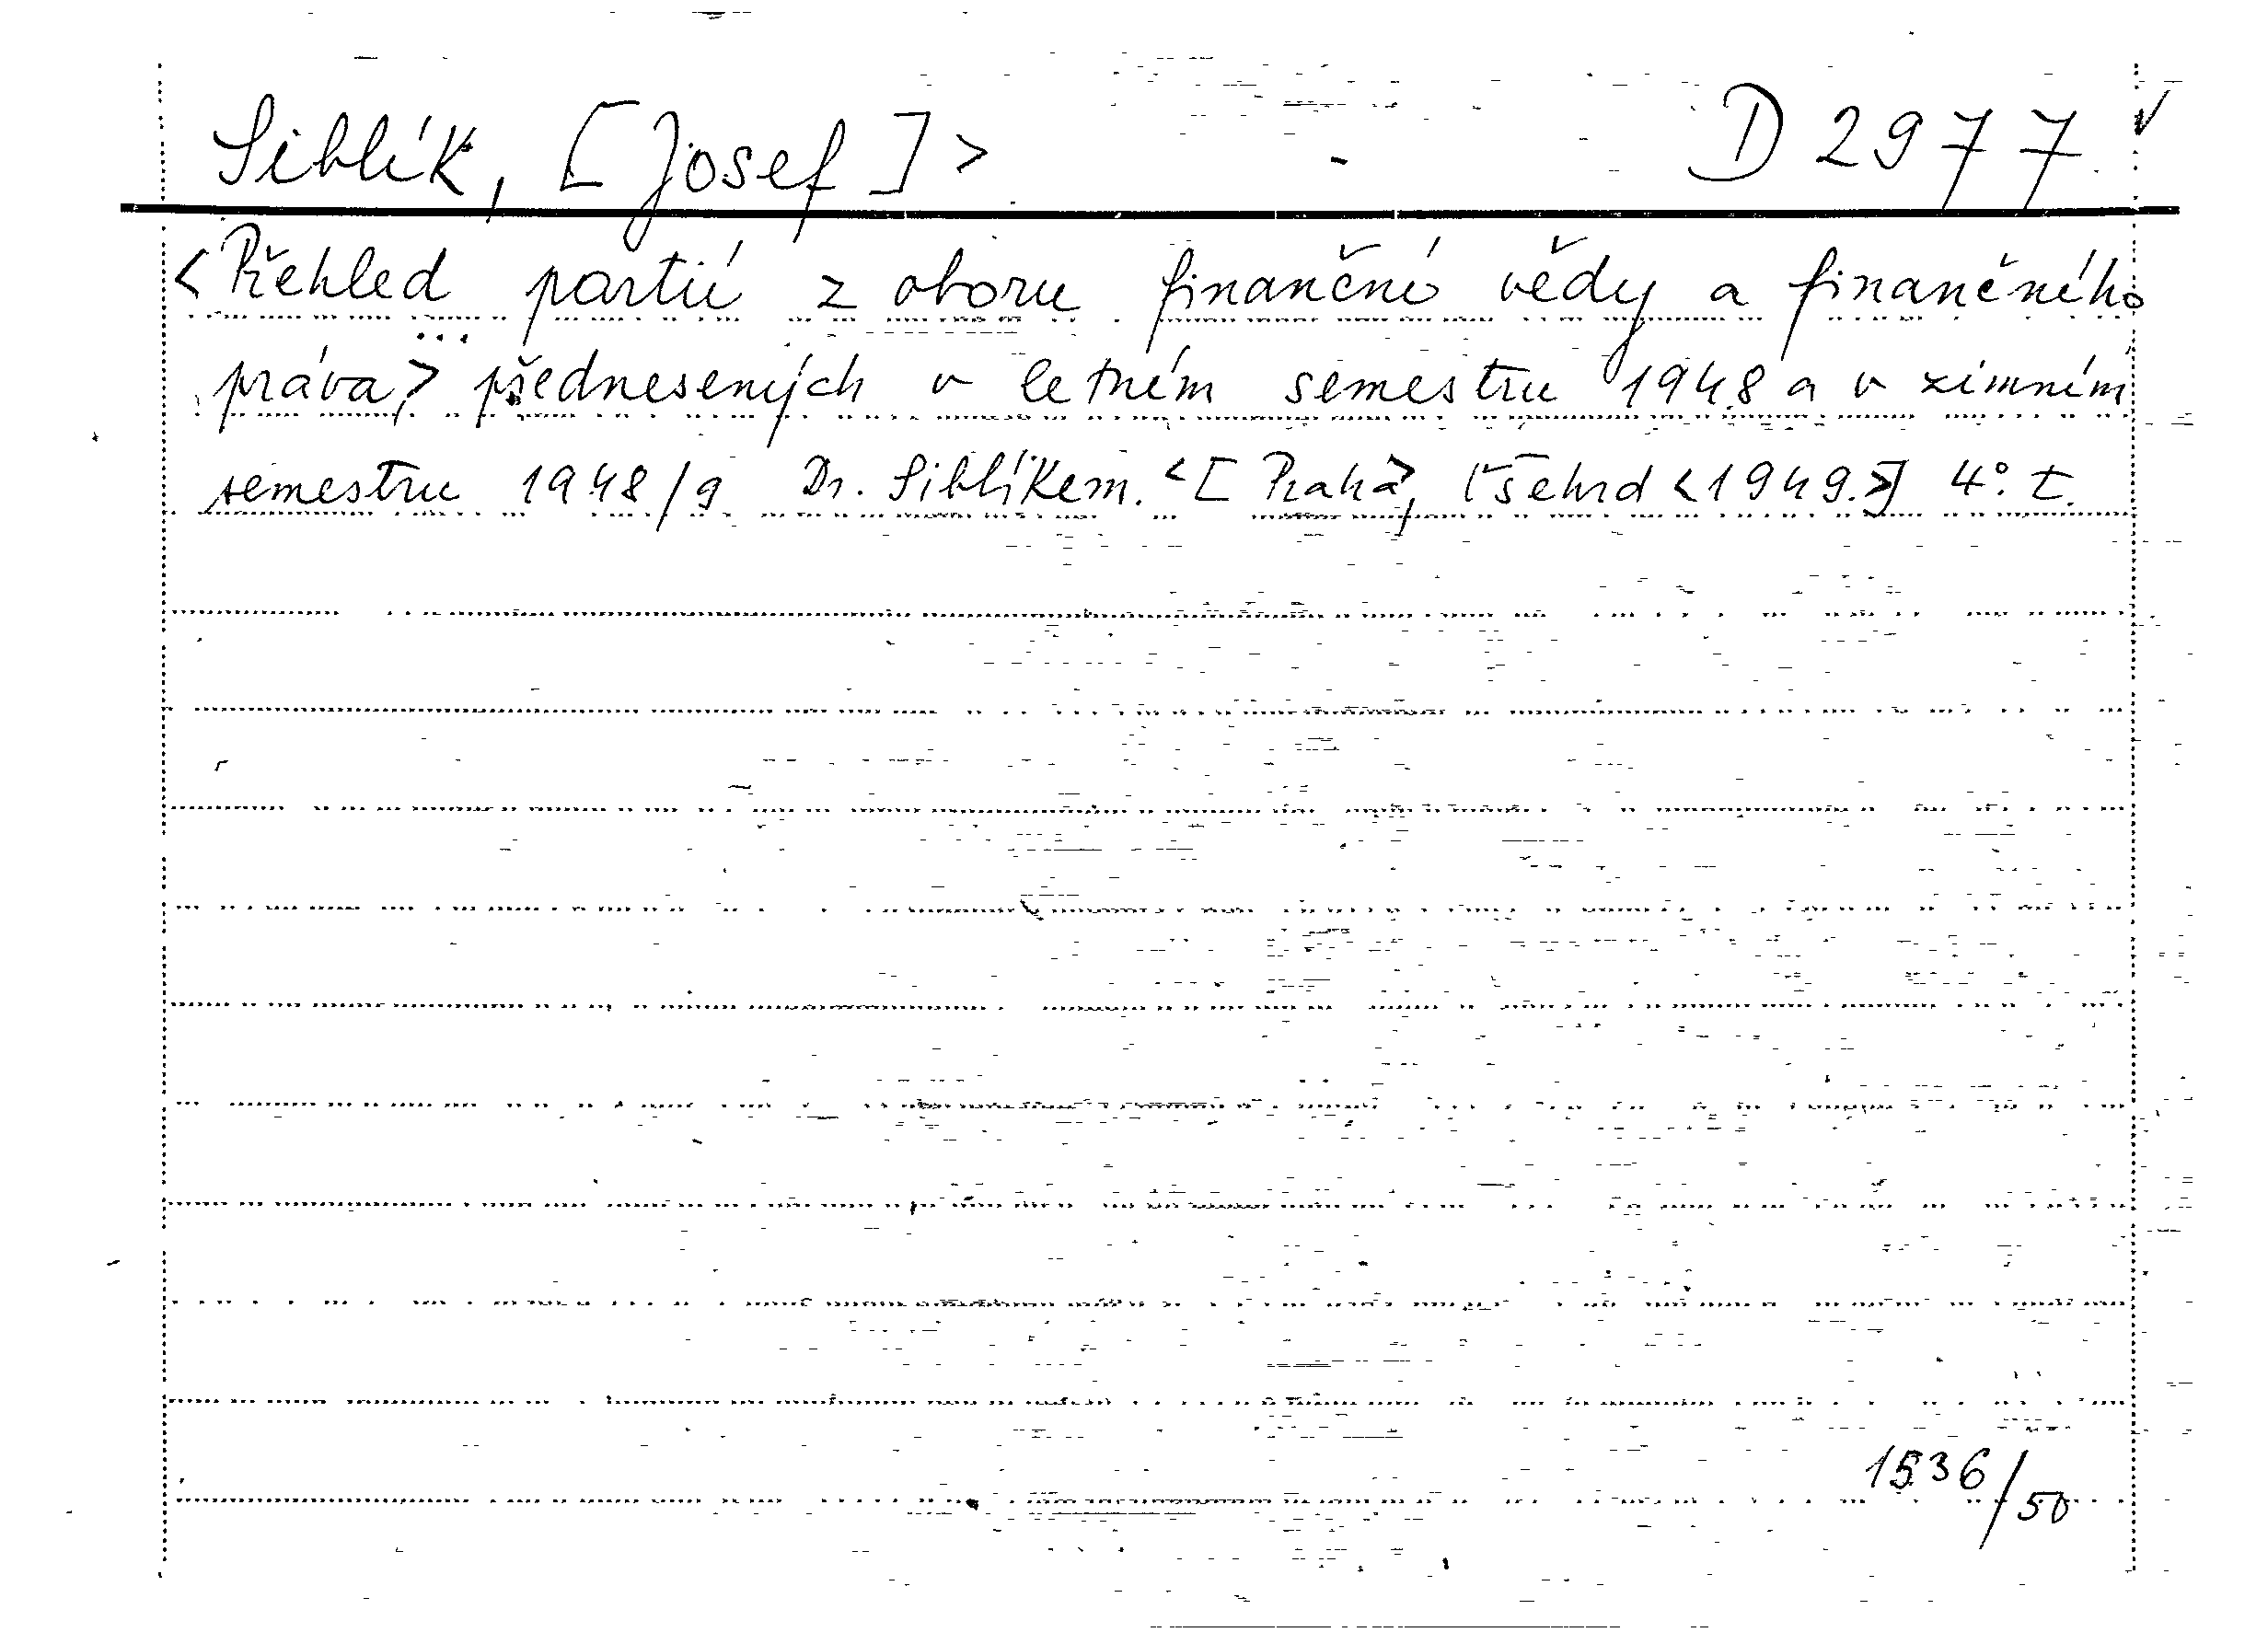 Siblík, [Josef]> D 2977
<Přehled partií z oboru finanční vědy a finančního
práva,> ... přednesených v letním semestru 1948 a v zimním
semestru 1948/9 Dr. Siblíkem. <[Praha>, Všehrd <1949.>] 4°. t.
1536/50